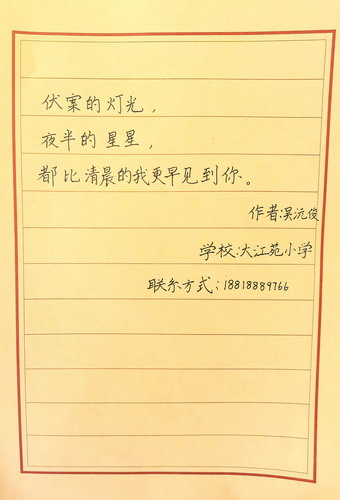 伏案的灯光，
夜半的星星，
都比清晨的我更早见到你。
作者:吴沅俊
学校:大江苑小学
联系方式：18818889766